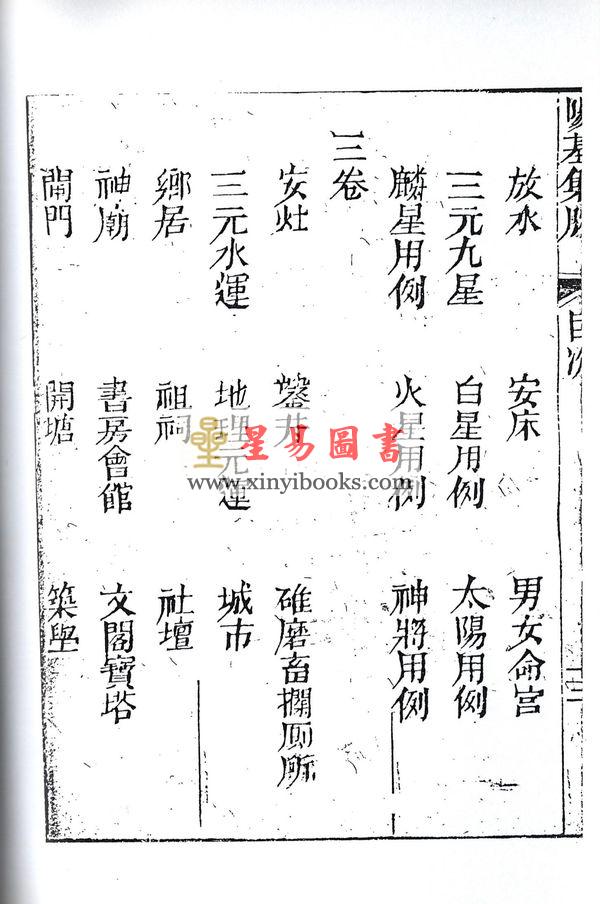 陽基集腋
目次
放水 安床 男女命宮
三元九星 白星用例 太陽用例
麟星用例 火星用例 神將用例
三卷
安灶 鑿井 碓磨畜欄厠所
三元水運 地理元運 城市
鄉居 祖祠 社壇
神廟 書房會館 文閣寶塔
開門 開塘 築壆
星易圖書
www.xinyibooks.com